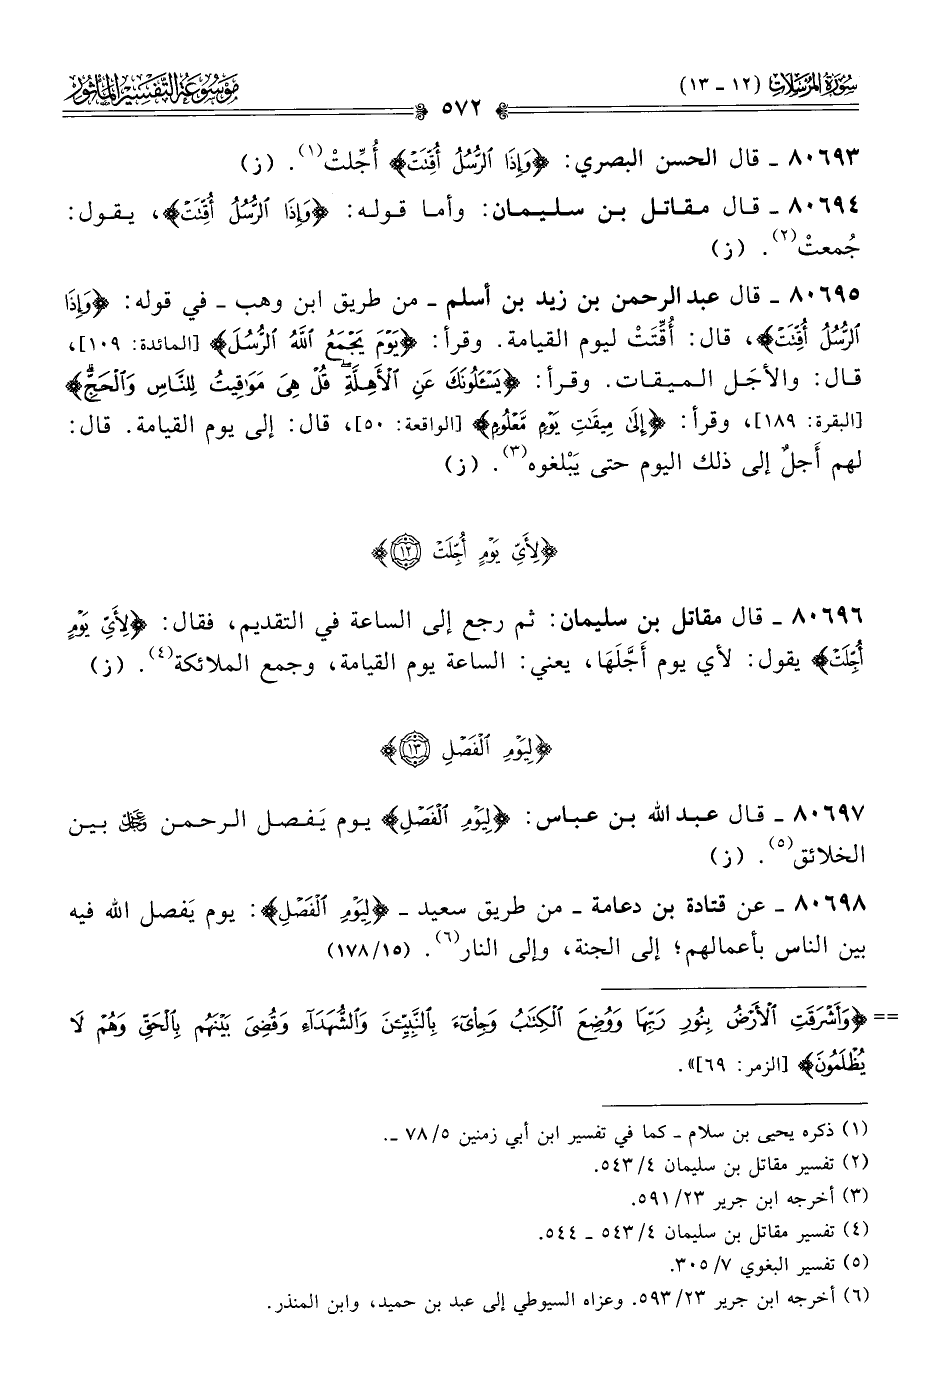 سُورَةُ المُرْسَلَاتِ (١٢ - ١٣)
٥٧٢
مَوْسُوعَةُ التَّفْسِيرِ المَأْثُورِ
٨٠٦٩٣ ـ قال الحسن البصري: ﴿وَإِذَا ٱلرُّسُلُ أُقِّتَتۡ﴾ أُجِّلتْ(١). (ز)
٨٠٦٩٤ ـ قال مقاتل بن سليمان: وأما قوله: ﴿وَإِذَا ٱلرُّسُلُ أُقِّتَتۡ﴾، يقول:
جُمعتْ(٢). (ز)
٨٠٦٩٥ ـ قال عبد الرحمن بن زيد بن أسلم ـ من طريق ابن وهب ـ في قوله: ﴿وَإِذَا
ٱلرُّسُلُ أُقِّتَتۡ﴾، قال: أُقِّتَتْ ليوم القيامة. وقرأ: ﴿يَوۡمَ يَجۡمَعُ ٱللَّهُ ٱلرُّسُلَ﴾ [المائدة: ١٠٩]،
قال: والأجَل الميقات. وقرأ: ﴿يَسۡـَٔلُونَكَ عَنِ ٱلۡأَهِلَّةِۖ قُلۡ هِىَ مَوَٰقِيتُ لِلنَّاسِ وَٱلۡحَجِّۗ﴾
[البقرة: ١٨٩]، وقرأ: ﴿إِلَىٰ مِيقَٰتِ يَوۡمٖ مَّعۡلُومٖ﴾ [الواقعة: ٥٠]، قال: إلى يوم القيامة. قال:
لهم أَجلٌ إلى ذلك اليوم حتى يَبْلغوه(٣). (ز)
﴿لِأَىِّ يَوۡمٍ أُجِّلَتۡ ١٢﴾
٨٠٦٩٦ ـ قال مقاتل بن سليمان: ثم رجع إلى الساعة في التقديم، فقال: ﴿لِأَىِّ يَوۡمٍ
أُجِّلَتۡ﴾ يقول: لأي يوم أَجَّلَهَا، يعني: الساعة يوم القيامة، وجمع الملائكة(٤). (ز)
﴿لِيَوۡمِ ٱلۡفَصۡلِ ١٣﴾
٨٠٦٩٧ ـ قال عبد الله بن عباس: ﴿لِيَوۡمِ ٱلۡفَصۡلِ﴾ يوم يَفصل الرحمن ﷿ بين
الخلائق(٥). (ز)
٨٠٦٩٨ ـ عن قتادة بن دعامة ـ من طريق سعيد ـ ﴿لِيَوۡمِ ٱلۡفَصۡلِ﴾: يوم يَفصل الله فيه
بين الناس بأعمالهم؛ إلى الجنة، وإلى النار(٦). (١٥/١٧٨)
== ﴿وَأَشۡرَقَتِ ٱلۡأَرۡضُ بِنُورِ رَبِّهَا وَوُضِعَ ٱلۡكِتَٰبُ وَجِاْىٓءَ بِٱلنَّبِيِّـۧنَ وَٱلشُّهَدَآءِ وَقُضِىَ بَيۡنَهُم بِٱلۡحَقِّ وَهُمۡ لَا
يُظۡلَمُونَ﴾ [الزمر: ٦٩]».
(١) ذكره يحيى بن سلام ـ كما في تفسير ابن أبي زمنين ٥/ ٧٨ ـ.
(٢) تفسير مقاتل بن سليمان ٤/ ٥٤٣.
(٣) أخرجه ابن جرير ٢٣/ ٥٩١.
(٤) تفسير مقاتل بن سليمان ٤/ ٥٤٣ ـ ٥٤٤.
(٥) تفسير البغوي ٧/ ٣٠٥.
(٦) أخرجه ابن جرير ٢٣/ ٥٩٣. وعزاه السيوطي إلى عبد بن حميد، وابن المنذر.